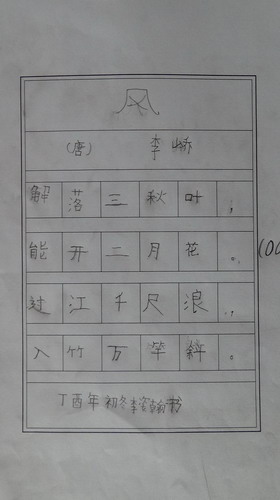 风
(唐) 李峤
解落三秋叶,
能开二月花。
过江千尺浪,
入竹万竿斜。
丁酉年初冬李